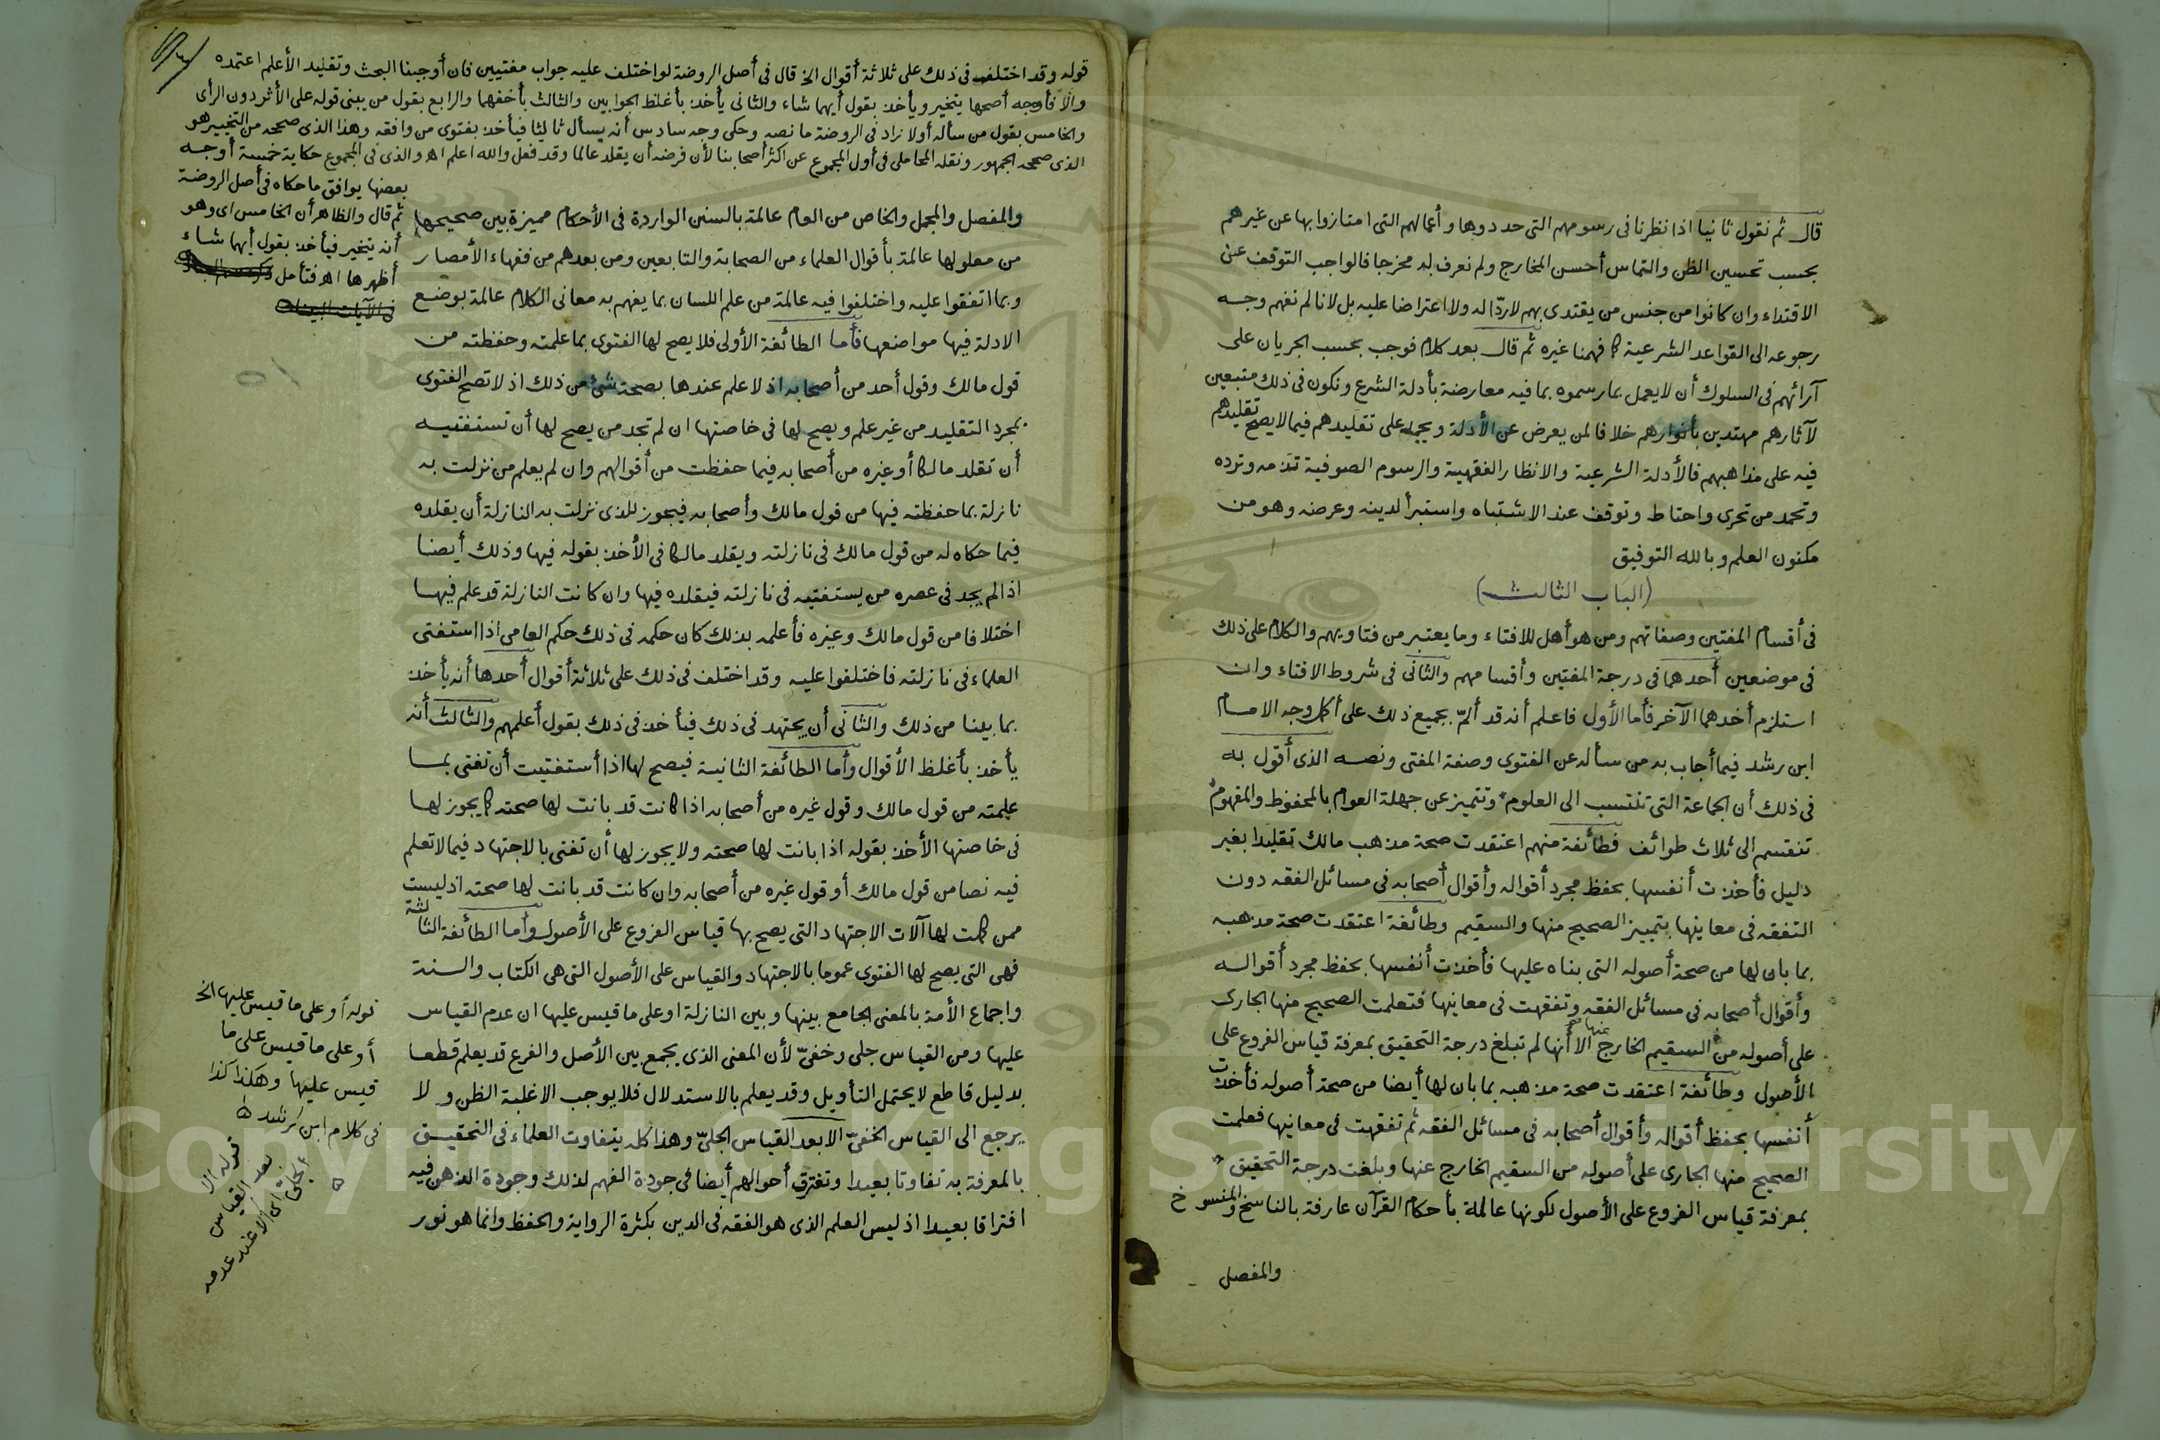 قال ثم نقول ثانيا اذا نظرنا فى رسومهم التى حددوها وأعمالهم التى امتازوا بها عن غيرهم
بحسب تحسين الظن والتماس أحسن المخارج ولم نعرف له مخرجا فالواجب التوقف عن
الاقتداء وان كانوا من جنس من يقتدى بهم لا ردّا له ولا اعتراضا عليه بل لانا لم نفهم وجه
رجوعه الى القواعد الشرعية كما فهمنا غيره ثم قال بعد كلام فوجب بحسب الجريان على
آرائهم فى السلوك أن لا يعمل بما رسموه بما فيه معارضة بأدلة الشرع ونكون فى ذلك متبعين
لآثارهم مهتدين بأنوارهم خلافا لمن يعرض عن الأدلة ويجمد على تقليدهم فيما لا يصح تقليدهم
فيه على مذاهبهم فالأدلة الشرعية والانظار الفقهية والرسوم الصوفية تذمه وترده
وتحمد من تحرى واحتاط وتوقف عند الاشتباه واستبرأ لدينه وعرضه وهو من
مكنون العلم وبالله التوفيق
(الباب الثالث)
فى أقسام المفتين وصفاتهم ومن هو أهل للافتاء وما يعتبر من فتاويهم والكلام على ذلك
فى موضعين أحدهما فى درجة المفتين وأقسامهم والثانى فى شروط الافتاء وان
استلزم أحدهما الآخر فأما الأول فاعلم أنه قد ألمّ بجميع ذلك على أكمل وجه الامام
ابن رشد فيما أجاب به من سأله عن الفتوى وصفة المفتى ونصه الذى أقول به
فى ذلك أن الجماعة التى تنتسب الى العلوم وتتميز عن جهلة العوام بالمحفوظ والمفهوم
تنقسم الى ثلاث طوائف فطائفة منهم اعتقدت صحة مذهب مالك تقليدا بغير
دليل فأخذت أنفسها بحفظ مجرد أقواله وأقوال أصحابه فى مسائل الفقه دون
التفقه فى معانيها بتمييز الصحيح منها والسقيم وطائفة اعتقدت صحة مذهبه
بما بان لها من صحة أصوله التى بناه عليها فأخذت أنفسها بحفظ مجرد أقواله
وأقوال أصحابه فى مسائل الفقه وتفقهت فى معانيها فتعلمت الصحيح منها الجارى
على أصوله من السقيم الخارج عنها الا أنها لم تبلغ درجة التحقيق بمعرفة قياس الفروع على
الأصول وطائفة اعتقدت صحة مذهبه بما بان لها أيضا من صحة أصوله فأخذت
أنفسها بحفظ أقواله وأقوال أصحابه فى مسائل الفقه ثم تفقهت فى معانيها فعلمت
الصحيح منها الجارى على أصوله من السقيم الخارج عنها وبلغت درجة التحقيق
بمعرفة قياس الفروع على الأصول لكونها عالمة بأحكام القرآن عارفة بالناسخ والمنسوخ
والمفصل
قوله وقد اختلف فى ذلك على ثلاثة أقوال الخ قال فى أصل الروضة لو اختلف عليه جواب مفتيين فان أوجبنا البحث وتقليد الأعلم اعتمده
والا فأوجه أصحها يتخير ويأخذ بقول أيهما شاء والثانى يأخذ بأغلظ الجوابين والثالث بأخفهما والرابع بقول من يبنى قوله على الأثر دون الرأى
والخامس بقول من سأله أولا زاد فى الروضة ما نصه وحكى وجه سادس أنه يسأل ثالثا فيأخذ بفتوى من وافقه وهذا الذى صححه من التخيير هو
الذى صححه الجمهور ونقله المحاملى فى أول المجموع عن أكثر أصحابنا لأن فرضه أن يقلد عالما وقد فعل والله اعلم اهـ والذى فى المجموع حكاية خمسة أوجه
بعضها يوافق ما حكاه فى أصل الروضة
ثم قال والظاهر أن الخامس اى وهو
أنه يتخير فيأخذ بقول أيهما شاء
أظهرها اهـ فتأمل
فى الآيات البينات
والمفصل والمجمل والخاص من العام عالمة بالسنن الواردة فى الأحكام مميزة بين صحيحها
من معلولها عالمة بأقوال العلماء من الصحابة والتابعين ومن بعدهم من فقهاء الأمصار
وبما اتفقوا عليه واختلفوا فيه عالمة من علم اللسان بما يفهم به معانى الكلام عالمة بوضع
الادلة فيها مواضعها فأما الطائفة الأولى فلا يصح لها الفتوى بما علمته وحفظته من
قول مالك وقول أحد من أصحابه اذ لا علم عندها بصحة شئ من ذلك اذ لا تصح الفتوى
بمجرد التقليد من غير علم ويصح لها فى خاصتها ان لم تجد من يصح لها أن تستفتيه
أن تقلد مالكا أو غيره من أصحابه فيما حفظت من أقوالهم وان لم يعلم من نزلت به
نازلة بما حفظته فيها من قول مالك وأصحابه فيجوز للذى نزلت به النازلة أن يقلده
فيما حكاه له من قول مالك فى نازلته ويقلد مالكا فى الأخذ بقوله فيها وذلك أيضا
اذا لم يجد فى عصره من يستفتيه فى نازلته فيقلده فيها وان كانت النازلة قد علم فيها
اختلافا من قول مالك وغيره فأعلمه بذلك كان حكمه فى ذلك حكم العامى اذا استفتى
العلماء فى نازلته فاختلفوا عليه وقد اختلف فى ذلك على ثلاثة أقوال أحدها أنه يأخذ
بما يشا من ذلك والثانى أن يجتهد فى ذلك فيأخذ فى ذلك بقول أعلمهم والثالث أنه
يأخذ بأغلظ الأقوال وأما الطائفة الثانية فيصح لها اذا أستفتيت أن تفتى بما
علمته من قول مالك وقول غيره من أصحابه اذا كانت قد بانت لها صحته كما يجوز لها
فى خاصتها الأخذ بقوله اذا بانت لها صحته ولا يجوز لها أن تفتى بالاجتهاد فيما لا تعلم
فيه نصا من قول مالك أو قول غيره من أصحابه وان كانت قد بانت لها صحته اذ ليست
ممن كملت لها آلات الاجتهاد التى يصح بها قياس الفروع على الأصول وأما الطائفة الثالثة
فهى التى يصح لها الفتوى عموما بالاجتهاد والقياس على الأصول التى هى الكتاب والسنة
واجماع الأمة بالمعنى الجامع بينها وبين النازلة او على ما قيس عليها ان عدم القياس
عليها ومن القياس جلى وخفىّ لأن المعنى الذى يجمع بين الأصل والفرع قد يعلم قطعا
بدليل قاطع لا يحتمل التأويل وقد يعلم بالاستدلال فلا يوجب الا غلبة الظن ولا
يرجع الى القياس الخفىّ الا بعد القياس الجلىّ وهذا كله يتفاوت العلماء فى التحقيق
بالمعرفة به تفاوتا بعيدا وتفترق أحوالهم أيضا فى جودة الفهم لذلك وجودة الذهن فيه
افتراقا بعيدا اذ ليس العلم الذى هو الفقه فى الدين بكثرة الرواية والحفظ وانما هو نور
قوله أو على ما قيس عليها الخ
أو على ما قيس على ما
قيس عليها وهكذا كذا
فى كلام ابن رشد
قوله الا
بعد القياس
الجلىّ اى الا عند عدمه
Copyright © King Saud University